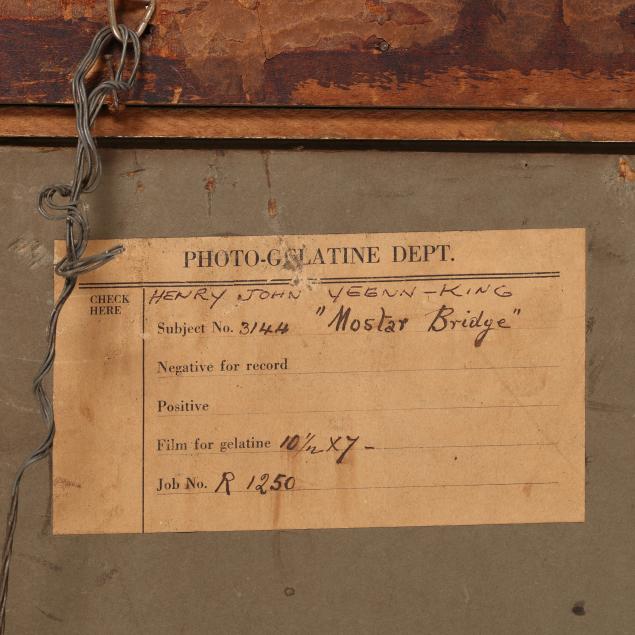 PHOTO-GELATINE DEPT.
CHECK HERE
HENRY JOHN YEENN-KING
Subject No. 3144 "Mostar Bridge"
Negative for record
Positive
Film for gelatine 10½ X 7 -
Job No. R 1250